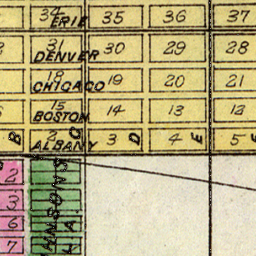 34 35 36 37
ERIE
31 30 29 28
DENVER
18 19 20 21
CHICAGO
15 14 13 12
BOSTON
B 2 C 3 D 4 E 5
ALBANY
2
3
6
7